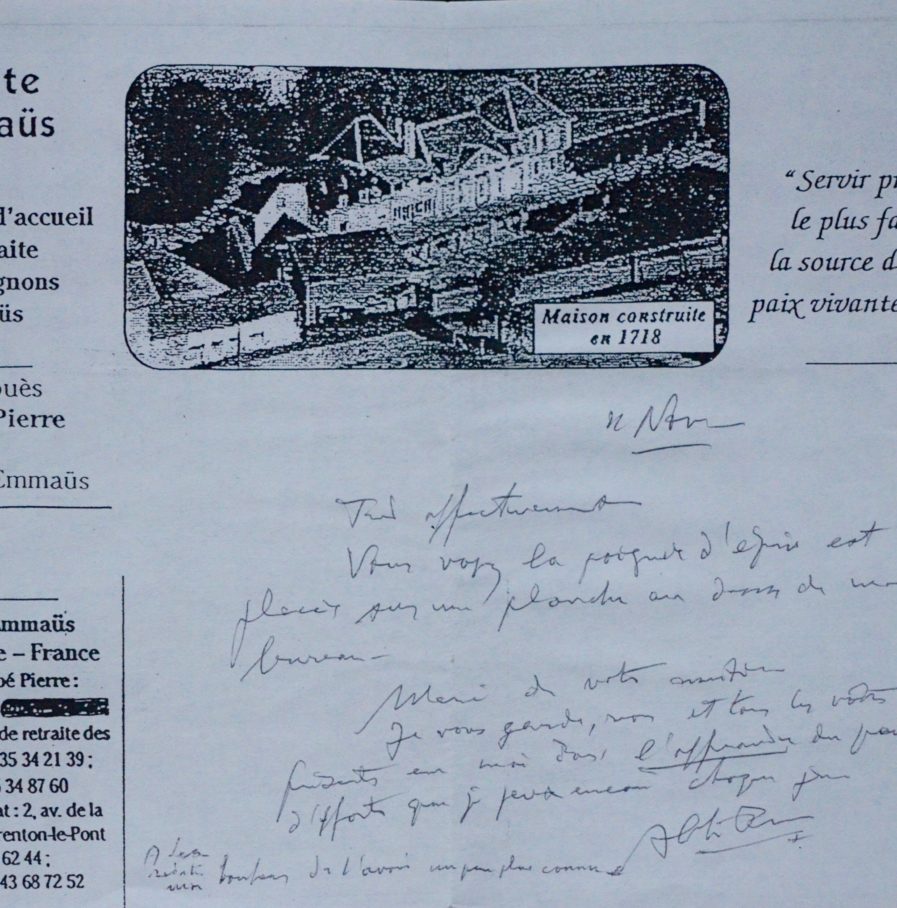 te
aüs
l'accueil
aite
gnons
üs
ouès
Pierre
Emmaüs
Maison construite
en 1718
“Servir pr
le plus fa
la source d
paix vivante
Vous voyez la poignée d'épis est
placée sur une planche au dessus de mon
bureau -
Merci de votre
Je vous garde, vous et tous les vôtres
présents en moi dans l'offrande du peu
d'efforts que je peux encore chaque jour
bonheur de l'avoir un peu plus connue
mmaüs
e – France
bé Pierre :
de retraite des
35 34 21 39 ;
34 87 60
at : 2, av. de la
renton-le-Pont
62 44 ;
43 68 72 52